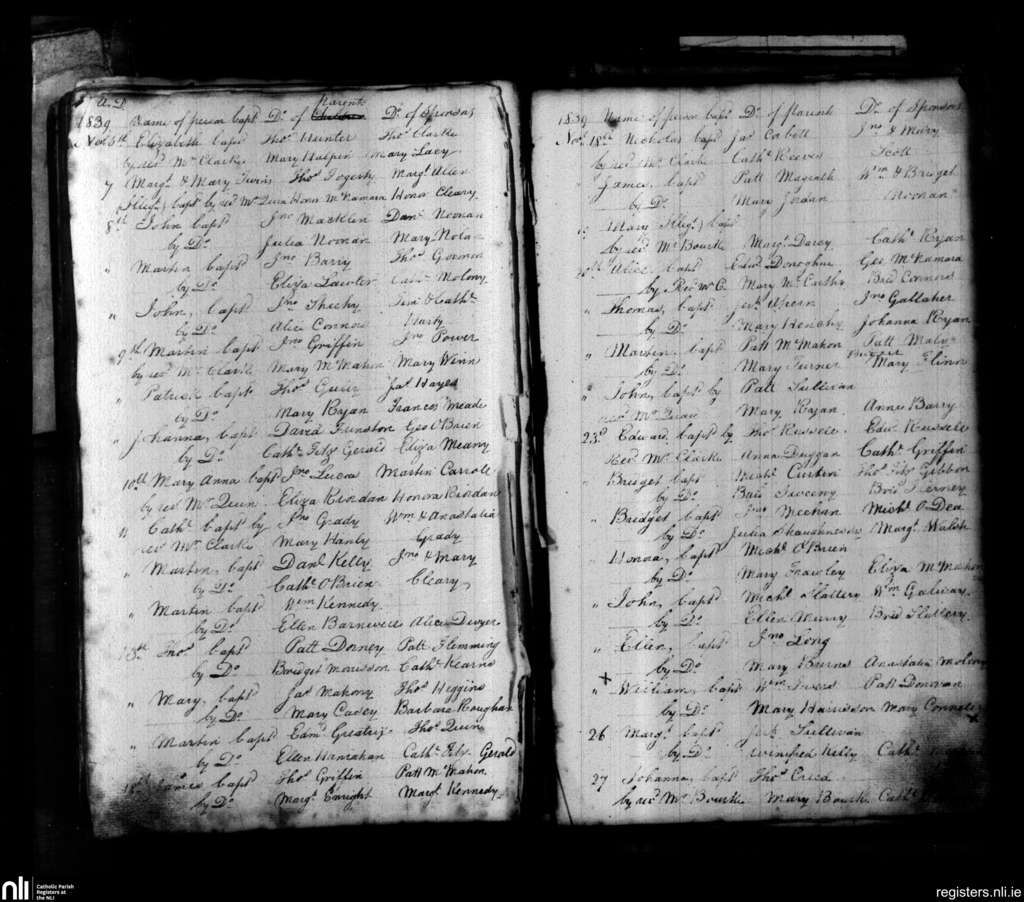 A.D.
1839 Name of person bapt Do. of Parents Do. of Sponsors
Novr. 5th Elizabeth bapt Thos. Hunter Thos. Clarke
by revd Mr Clarke Mary Halpin Mary Lacy
7 Margt. & Mary Twins Thos. Fogerty Margt. Allen
(Illegt.) bapt by revd Mr Quin Honor McNamara Honor Cleary
8th John bapt Jno Macklin Danl. Noonan
by Do. Julia Noonan Mary Nolan
" Martin bapt Jno Barry Thos. Gorman
by Do. Eliza Lawler Molony
" John, bapt Jno. & Cathe.
by Do. Alice Connors Harty
9th Martin bapt Jno Griffin Jno Power
by revd Mr Clarke Mary McMahon Mary Winn
" Patrick bapt Thos. Jas. Hayes
by Do. Mary Ryan Frances Meade
" Johanna, bapt David Geo O'Brien
by Do. Cathe. Fitz Gerald Eliza Meany
10th Mary Anna bapt Jno. Lucas Martin Carroll
by revd Mr Quin Eliza Riordan Honora Riordan
" Cathe. bapt by Jno Grady Wm & Anastatia
revd Mr. Clarke Mary Hanly Grady
" Martin, bapt Danl Kelly Jno & Mary
by Do. Cathe. O'Brien Cleary
" Martin bapt Wm Kennedy
by Do. Ellen Barnwell Alice Dwyer
13th Thos. bapt Patt Dorney Patt Flemming
by Do. Bridget Morisson Cathe. Kearns
" Mary, bapt Jas. Mahony Thos. Higgins
by Do. Mary Casey Barbara Roughan
" Martin bapt Eamd Greatrix Thos. Quin
by Do. Ellen Hanrahan Cathe. Fitz Gerald
James bapt Thos. Griffin Patt McMahon
by Do. Margt. Enright Margt. Kennedy
1839 Name of person bapt Do. of Parents Do. of Sponsors
Novr. 18th Nicholas bapt Jas Corbett Jno & Mary
by revd Mr. Clarke Cathe. Reeves Scott
" James, bapt Patt Magrath Wm & Bridget
by Do. Mary Noonan
Mary (Illegt.) bapt
by revd Mr Bourke Margt. Darcy Cathe. Ryan
20th Alice bapt Edwd Donoghue Geo McNamara
by Revd Mr C. Mary McCarthy Brid Connors
" Thomas, bapt Jno Gallaher
by Do. Mary Henchy Johanna Ryan
" Martin, bapt Patt McMahon Patt
by Do. Mary Turner Mary Flinn
" John, bapt by Patt Sullivan
revd Mr Quin Mary Ryan Anne Barry
23d Edward, bapt by Thos Russell Edwd Russell
Revd Mr Clarke Anna Duggan Cathe. Griffin
" Bridget bapt Michl. Curtin Thos Fitz Gibbon
by Do. Brid Sweeny Brid Tierney
" Bridget bapt Jno Meehan Michl. O'Dea
by Do. Julia Shaughnessy Margt. Walsh
" Honora, bapt Michl. O'Brien
by Do. Mary Frawley Eliza McMahon
" John, bapt Michl. Slattery Wm Galway
by Do. Ellen Murry Brid Slattery
" Ellen, bapt Jno Long
by Do. Mary Burns Anastatia Molony
" William, bapt Wm Patt Donovan
by Do. Mary Harrisson Mary Connell
26 Margt. bapt Sullivan
by Do. Winifred Kelly Cathe.
27 Johanna, bapt Thos.
by revd Mr Bourke Mary Bourke Cathe.
nli
Catholic Parish
Registers at
the NLI
registers.nli.ie